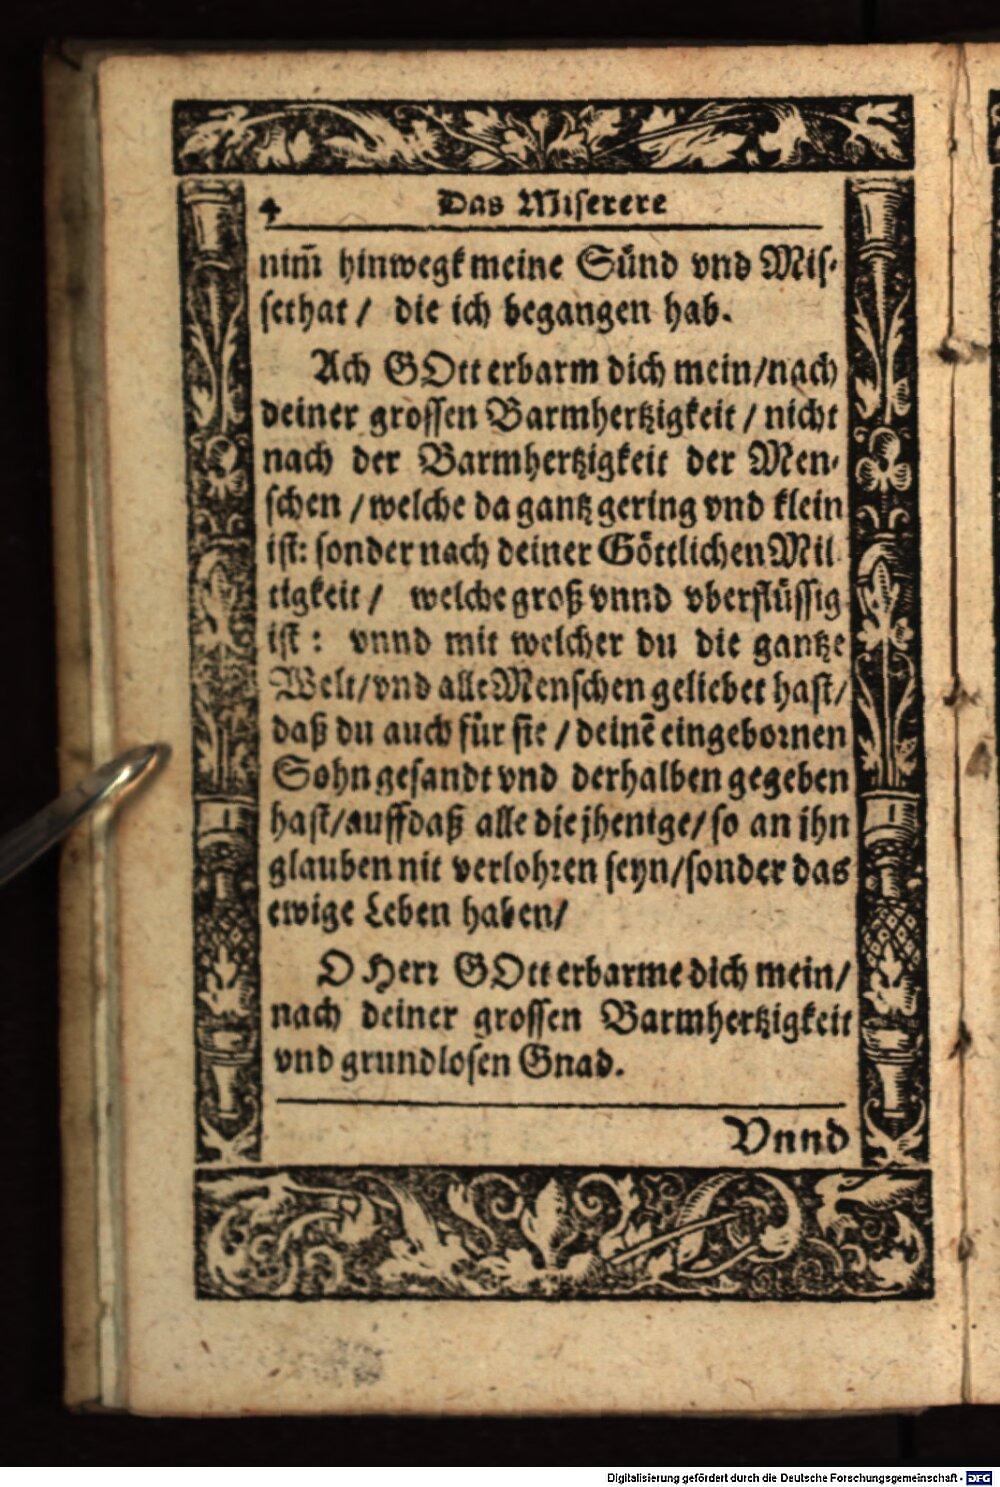 4 Das Miserere
nim̃ hinwegk meine Sünd vnd Mis-
sethat / die ich begangen hab.
Ach GOtt erbarm dich mein/nach
deiner grossen Barmhertzigkeit / nicht
nach der Barmhertzigkeit der Men-
schen / welche da gantz gering vnd klein
ist: sonder nach deiner Göttlichen Mil-
tigkeit / welche groß vnnd vberflüssig
ist : vnnd mit welcher du die gantze
Welt/vnd alle Menschen geliebet hast/
daß du auch für sie / deinẽ eingebornen
Sohn gesandt vnd derhalben gegeben
hast/auffdaß alle die jhenige/so an jhn
glauben nit verlohren seyn/sonder das
ewige Leben haben/
O Herr GOtt erbarme dich mein/
nach deiner grossen Barmhertzigkeit
vnd grundlosen Gnad.
Vnnd
Digitalisierung gefördert durch die Deutsche Forschungsgemeinschaft - DFG